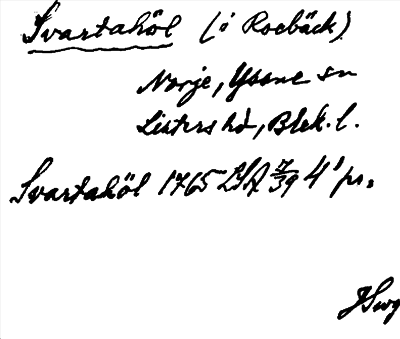 Svartahöl (i Roebäck)
Norje, Ysane sn
Listers hd, Blek. l.
Svartahöl 1765 LSA 7/39 4' pr.
JSwg